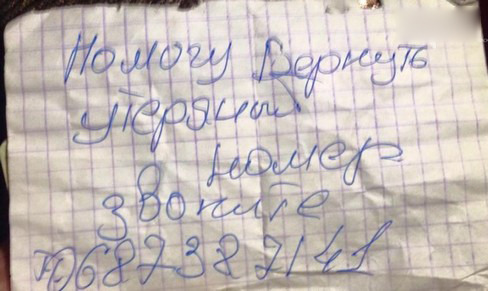 Помогу Вернуть
утеряный
номер
звоните
т0687387141